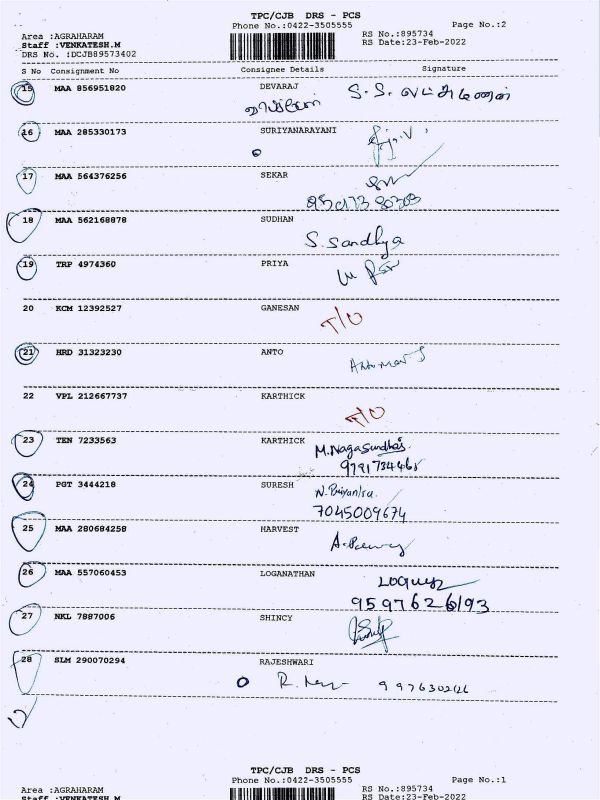 TPC/CJB DRS - PCS
Phone No.:0422-3505555 Page No.:2
Area :AGRAHARAM RS No.:895734
Staff :VENKATESH.M RS Date:23-Feb-2022
DRS No. :DCJB89573402
S No Consignment No Consignee Details Signature
15 MAA 856951820 DEVARAJ
16 MAA 285330173 SURIYANARAYANI
17 MAA 564376256 SEKAR
18 MAA 562168878 SUDHAN
S. Sandhya
19 TRP 4974360 PRIYA
20 KCM 12392527 GANESAN
T/O
21 HRD 31323230 ANTO
22 VPL 212667737 KARTHICK
23 TEN 7233563 KARTHICK
24 PGT 3444218 SURESH
7045009674
25 MAA 280684258 HARVEST
26 MAA 557060453 LOGANATHAN
27 NKL 7887006 SHINCY
28 SLM 290070294 RAJESHWARI
TPC/CJB DRS - PCS
Phone No.:0422-3505555 Page No.:1
Area :AGRAHARAM RS No.:895734
Staff :VENKATESH.M RS Date:23-Feb-2022